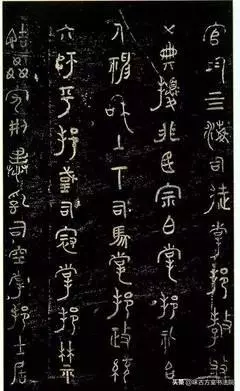 官均亖海司徒掌邦教敷
五典擾兆民宗白掌邦礼
咊上下司馬掌邦政統
六師平邦國司寇掌邦禁
詰姦慝刑暴亂司空掌邦土居
头条@古方堂书法院